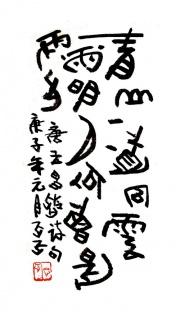 青山一道同雲
雨明月何曾是
兩鄉
唐王昌齡詩句
庚子年元月